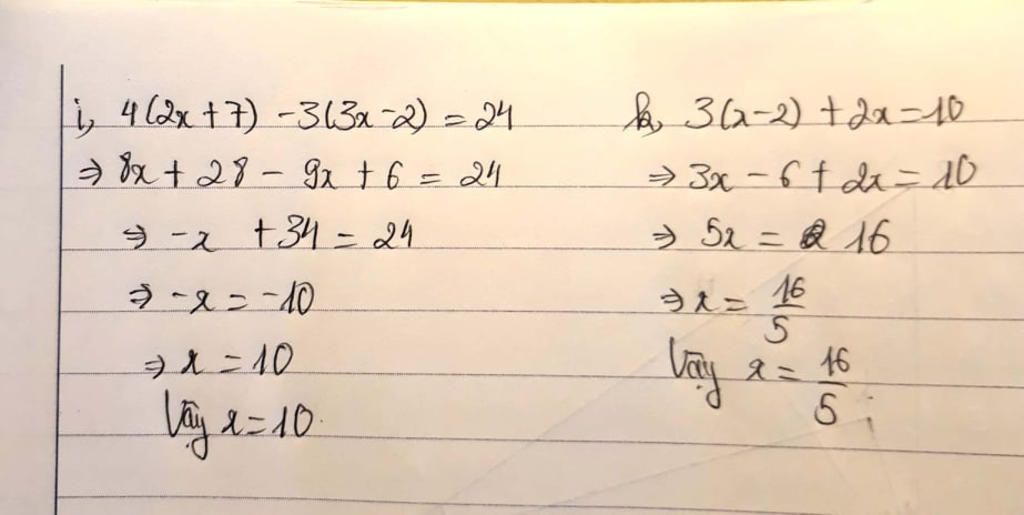 i, 4(2x+7) -3(3x-2) = 24
⇒ 8x + 28 - 9x + 6 = 24
⇒ -x +34 = 24
⇒ -x = -10
⇒ x = 10
Vậy x = 10.
k, 3(x-2) + 2x = 10
⇒ 3x - 6 + 2x = 10
⇒ 5x = 16
⇒ x = 16/5
Vậy x = 16/5